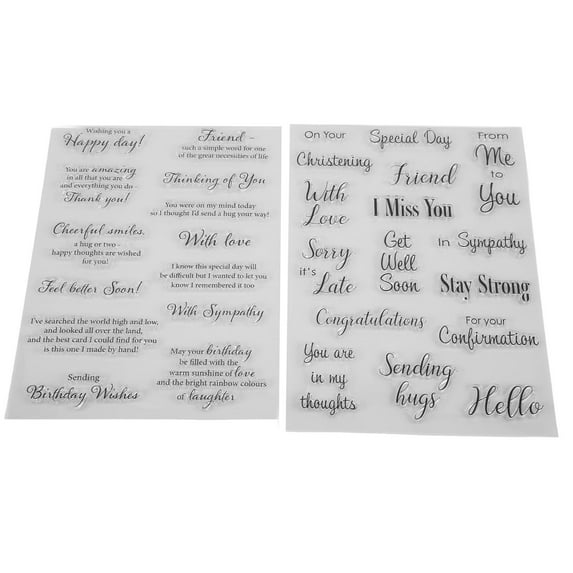 Wishing you a
Happy day!
You are amazing
in all that you are
and everything you do -
Thank you!
Cheerful smiles,
a hug or two -
happy thoughts are wished
for you!
Feel better Soon!
I've searched the world high and low,
and looked all over the land,
and the best card I could find for you
is this one I made by hand!
Sending
Birthday Wishes
Friend -
such a simple word for one
of the great necessities of life
Thinking of You
You were on my mind today
so I thought I'd send a hug your way!
With love
I know this special day will
be difficult but I wanted to let you
know I remembered it too
With Sympathy
May your birthday
be filled with the
warm sunshine of love
and the bright rainbow colours
of laughter
On Your
Special Day
From
Christening
Friend
Me
to
You
With
Love
I Miss You
Sorry
it's
Late
Get
Well
Soon
in Sympathy
Stay Strong
Congratulations
For your
Confirmation
You are
in my
thoughts
Sending
hugs
Hello